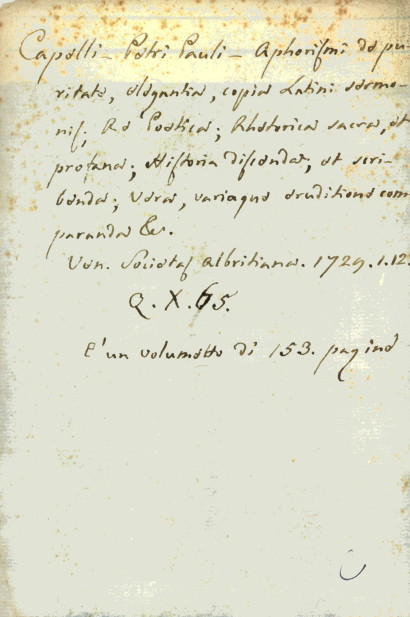 Capelli – Petri Pauli – Aphorismi de pu-
ritate, elegantia, copia Latini sermo-
nis; Re Poetica; Rhetorica sacra, et
profana; Historia discenda, et scri-
benda; Vera, variaque eruditione com
paranda &c.
Ven. Societas Albritiana. 1729. 1. 12.
Q. X. 65.
E' un volumetto di 153. pagine